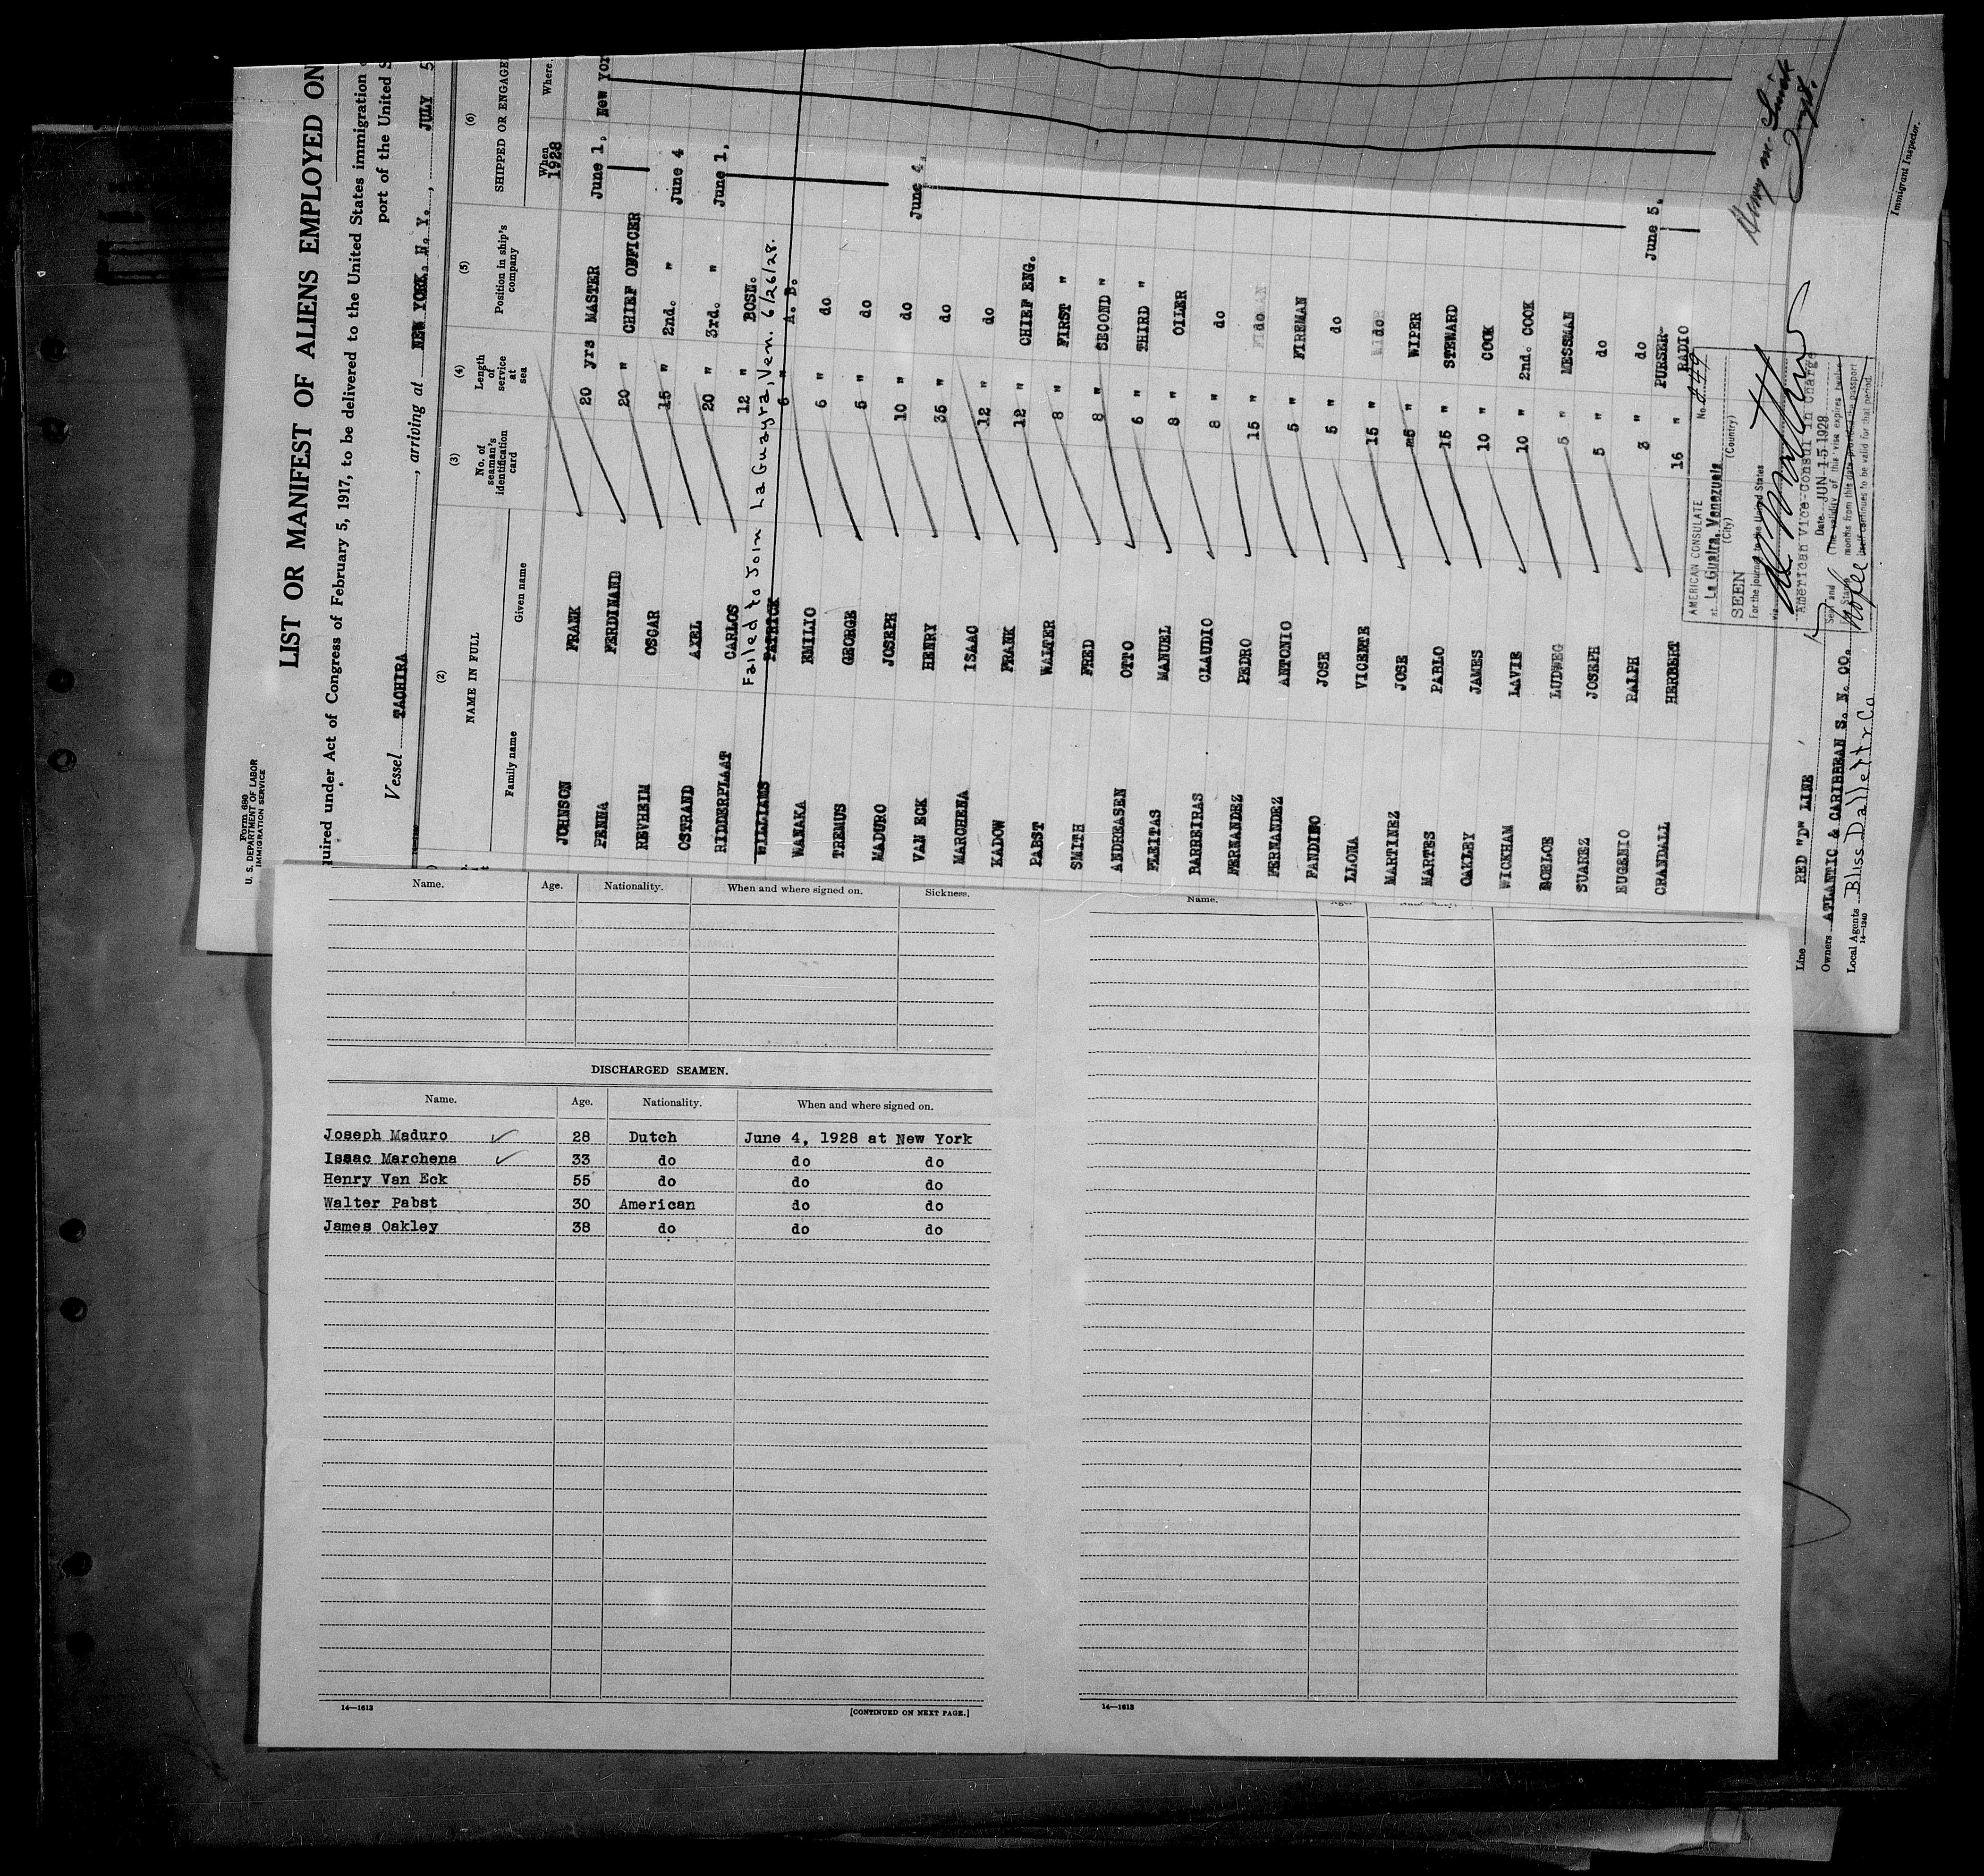 Form 680
U. S. DEPARTMENT OF LABOR
IMMIGRATION SERVICE
LIST OR MANIFEST OF ALIENS EMPLOYED ON
quired under Act of Congress of February 5, 1917, to be delivered to the United States immigration
port of the United S
Vessel TACHIRA, arriving at NEW YORK. N. Y., JULY 5
(2) (3) (4) (5) (6)
NAME IN FULL No. of seaman's identification card Length of service at sea Position in ship's company SHIPPED OR ENGAGE
Family name Given name When Where.
1928
JOHNSON FRANK 20 yrs MASTER June 1, New Yor
PENHA FERDINAND 20 " CHIEF OFFICER
REVHEIM OSCAR 15 " 2nd. " June 4
OSTRAND AXEL 20 " 3rd. " June 1,
RIDDERPLAAT CARLOS 12 " BOSN.
Failed to Join La Guayra, Ven. 6/26/28.
WILLIAMS PATRICK 6 " A. B.
WANAKA EMILIO 6 " do
TREMUS GEORGE 5 " do
MADURO JOSEPH 10 " do June 4,
VAN ECK HENRY 35 " do
MARCHENA ISAAC 12 " do
KADOW FRANK 12 " CHIEF ENG.
PABST WALTER 8 " FIRST "
SMITH FRED 8 " SECOND "
ANDREASEN OTTO 6 " THIRD "
FLEITAS MANUEL 8 " OILER
BARREIRAS CLAUDIO 8 " do
FERNANDEZ PEDRO 15 " do
FERNANDEZ ANTONIO 5 " FIREMAN
FANDINO JOSE 5 " do
LLONA VICENTE 15 " do
MARTINEZ JOSE 5 " WIPER
MARTES PABLO 15 " STEWARD
OAKLEY JAMES 10 " COOK
WICKHAM LAVIE 10 " 2nd. COOK
BOELOE LUDWEG 5 " MESSMAN
SUAREZ JOSEPH 5 " do
EUGENIO RALPH 3 " do
CRANDALL HERBERT 16 " PURSER-RADIO June 5,
AMERICAN CONSULATE No.
at La Guaira, Venezuela
(City) (Country)
SEEN
For the journey to the United States
via
American Vice-Consul in Charge
Date JUN 15 1928
(The validity of this visa expires twelve
months from this date provided the passport
itself continues to be valid for that period.
Seal and
Stamp
No fee
Henry M. Smith
Immigrant Inspector.
Line RED "D" LINE
Owners ATLANTIC & CARIBBEAN S. N. CO.
Local Agents Bliss Dallett & Co
14—1240
Name. Age. Nationality. When and where signed on. Sickness.
DISCHARGED SEAMEN.
Name. Age. Nationality. When and where signed on.
Joseph Maduro 28 Dutch June 4, 1928 at New York
Isaac Marchena 33 do do do
Henry Van Eck 55 do do do
Walter Pabst 30 American do do
James Oakley 38 do do do
14—1613 [CONTINUED ON NEXT PAGE.]
Name.
14—1613